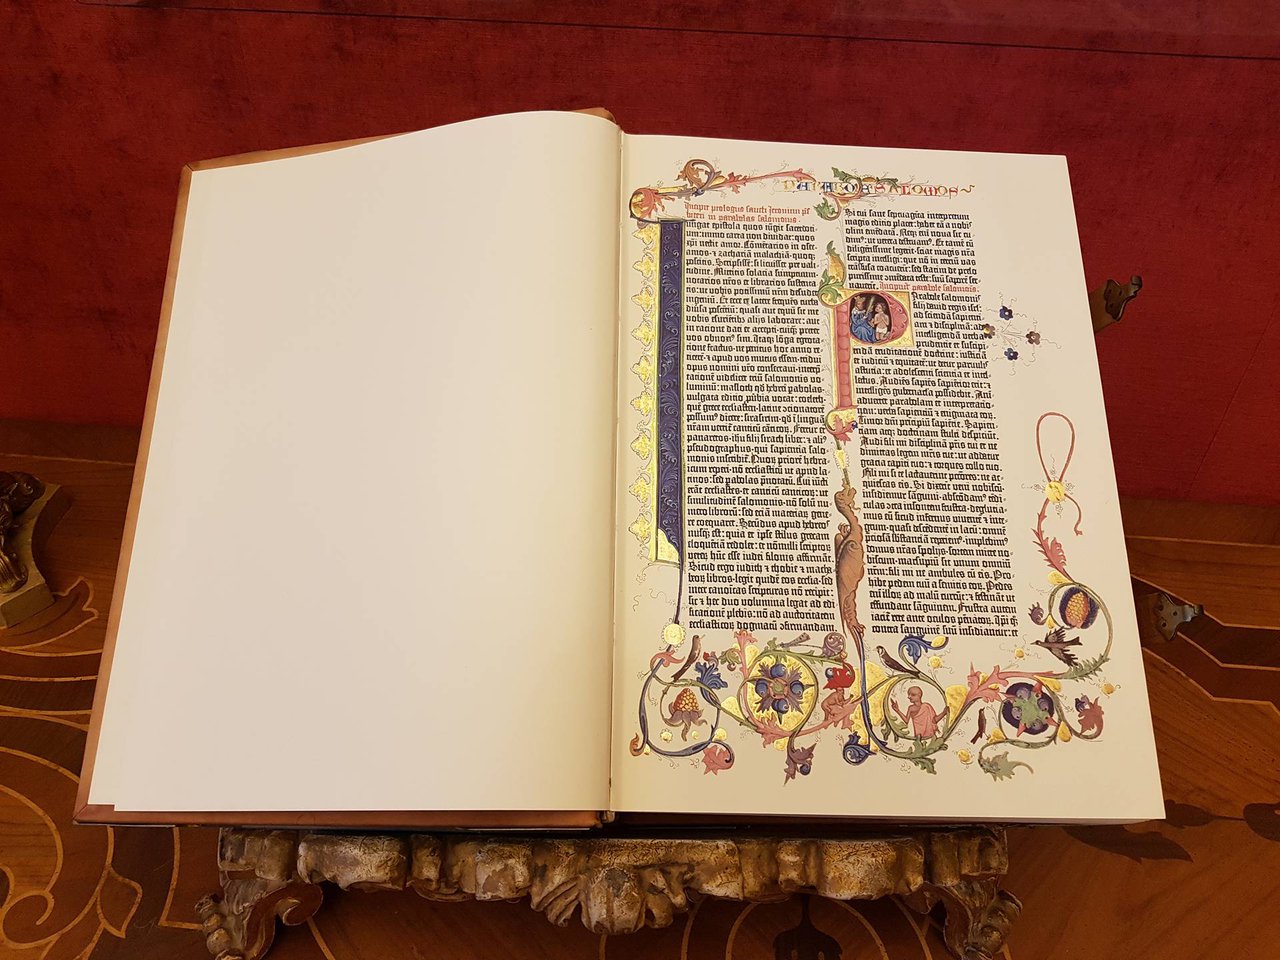 PARABOLE SALOMOIS
Incipit prologus sancti Jeronimi p̄s
biteri in parabolas salomonis
Iungat epistola quos iūgit sacerdoti-
um: immo carta non diuidat: quos
xp̄i nectit amor. Cōmētarios in osee-
amos-⁊ zachariā malachiā-quoqȝ
poscitis. Scripsissē: si licuisset pre vali-
tudine. Mittitis solacia sumptuum-
notarios nr̄os et librarios sustenta-
tis: ut vobis potissimū nr̄m desudet
ingeniū. Et ecce ex latere frequēs turba
diuersa poscētiū: quasi aut equū sit me
vobis esurientibȝ alijs laborare: aut
in racione dati et accepti-cuiqȝ preter
vos obnoxi⁹ sim. Itaqȝ lōga egrota-
tione fractus-ne penitus hoc anno re-
ticerē-⁊ apud vos mutus essem-tridui
opus nomini vr̄o consecraui-interp̄-
tationē videlicet triū salomonis vo-
luminū: masloth qd̄ hebrei pabolas-
vulgata editio pūbia vocat: coeleth-
quē grece ecclesiasten-latine cōcionatorē
possum⁹ dicere: sirasirim-qd̄ ī linguā
nr̄am vertit̄ canticū cāticoȝ. Fertur et
panaretos-ihu filij sirach liber: ⁊ ali⁹
pseudographus-qui sapientia salo-
monis inscribit̄. Quoȝ priorē hebra-
icum reperi-nō ecclesiasticū ut apud la-
tinos: sed pabolas p̄notatū. Cui iūcti
erāt ecclesiastes-et canticū canticoȝ: ut
similitudinē salomonis-nō solū nu-
mero librorū: sed etiā materiaȝ gene-
re coequaret. Secūdus apud hebreos
nusqȝ est: quia et ipse stilus grecam
eloquētiā redolet: et nōnulli scriptoȝ
veteȝ hūc esse iudei filonis affirmāt.
Sicud ergo iudith ⁊ thobie ⁊ macha-
beoȝ libros-legit quidē eos ecclīa-sed
inter canonicas scripturas nō recipit:
sic ⁊ hec duo volumina legat ad edi-
ficationē plebis: nō ad auctoritatem
ecclesiasticoȝ dogmatū ⁊firmandam.
Si cui sane septuaginta interpretum
magis editio placet: habet eā a nobis
olim emēdatā. Neqȝ enī noua sic cu-
dim⁹: ut vetera destruam⁹. Et tamē cū
diligentissime legerit-sciat magis nr̄a
scripta intelligi: que nō in terciū vas
trāsfusa coacuerīt: sed statim de prelo
purissime ⁊mēdata teste: suū saporē ser-
uauerīt. Incipiūt parabole salomonis
Parabole salomonis
filij dauid regis isrl̄:
ad sciendā sapientiā
⁊ disciplinā: ad
intelligendā verba
prudentie et suscipi-
endā eruditionē doctrine: iusticiā
et iudiciū ⁊ equitatē: ut detur paruulis
astutia: et adolescenti scientia et intel-
lectus. Audiēs sapiēs sapiētior erit: ⁊
intelligēs gubernacla possidebit. Ani-
maduertet parabolam et interpretatio-
nem: verba sapientiū ⁊ enigmata eoȝ.
Timor dn̄i prīcipiū sapiētie. Sapien-
tiam atqȝ doctrinam stulti despiciūt.
Audi fili mi disciplinā pr̄is tui et ne
dimittas legem mr̄is tue: ut addatur
gracia capiti tuo: ⁊ torques collo tuo.
Fili mi si te lactauerint pctōres: ne ac-
quiescas eis. Si dixerīt veni nobiscū-
insidiemur sāguini-abscōdam⁹ tēdi-
culas ⁊tra insontem frustra-deglutia-
mus eū sicud infernus viuentē ⁊ inte-
grum-quasi descēdentē in lacū: omnē
p̄ciosā sb̄stantiā reperiem⁹-implebim⁹
domus nr̄as spolijs-sortem mitte no-
biscum-marsupiū sit unum omnium
nr̄m: fili mi ne ambules cū eis. Pro-
hibe pedem tuū a semitis eoȝ. Pedes
enī illoȝ ad malū currūt: ⁊ festināt ut
effundant sanguinem. Frustra autem
iacit̄ rete ante oculos pēnatoȝ. Ip̄i qȝ
contra sanguinē suū insidiantur: et